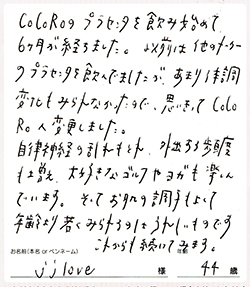 CoLoRoのプラセンタを飲み始めて、
6ヶ月が経ちました。以前は他のメーカー
のプラセンタを飲んでましたが、あまり体調
変化もみられなかったので、思いきって CoLo
Roへ変更しました。
自律神経の乱れもとれ、外出する頻度
も増え、大好きなゴルフやヨガも楽しん
でいます。そしてお肌の調子もよくて
年齢より若くみられるのはうれしいものです
これからも続けてみます。
お名前(本名 or ペンネーム) 年齢
jjlove 様 44 歳